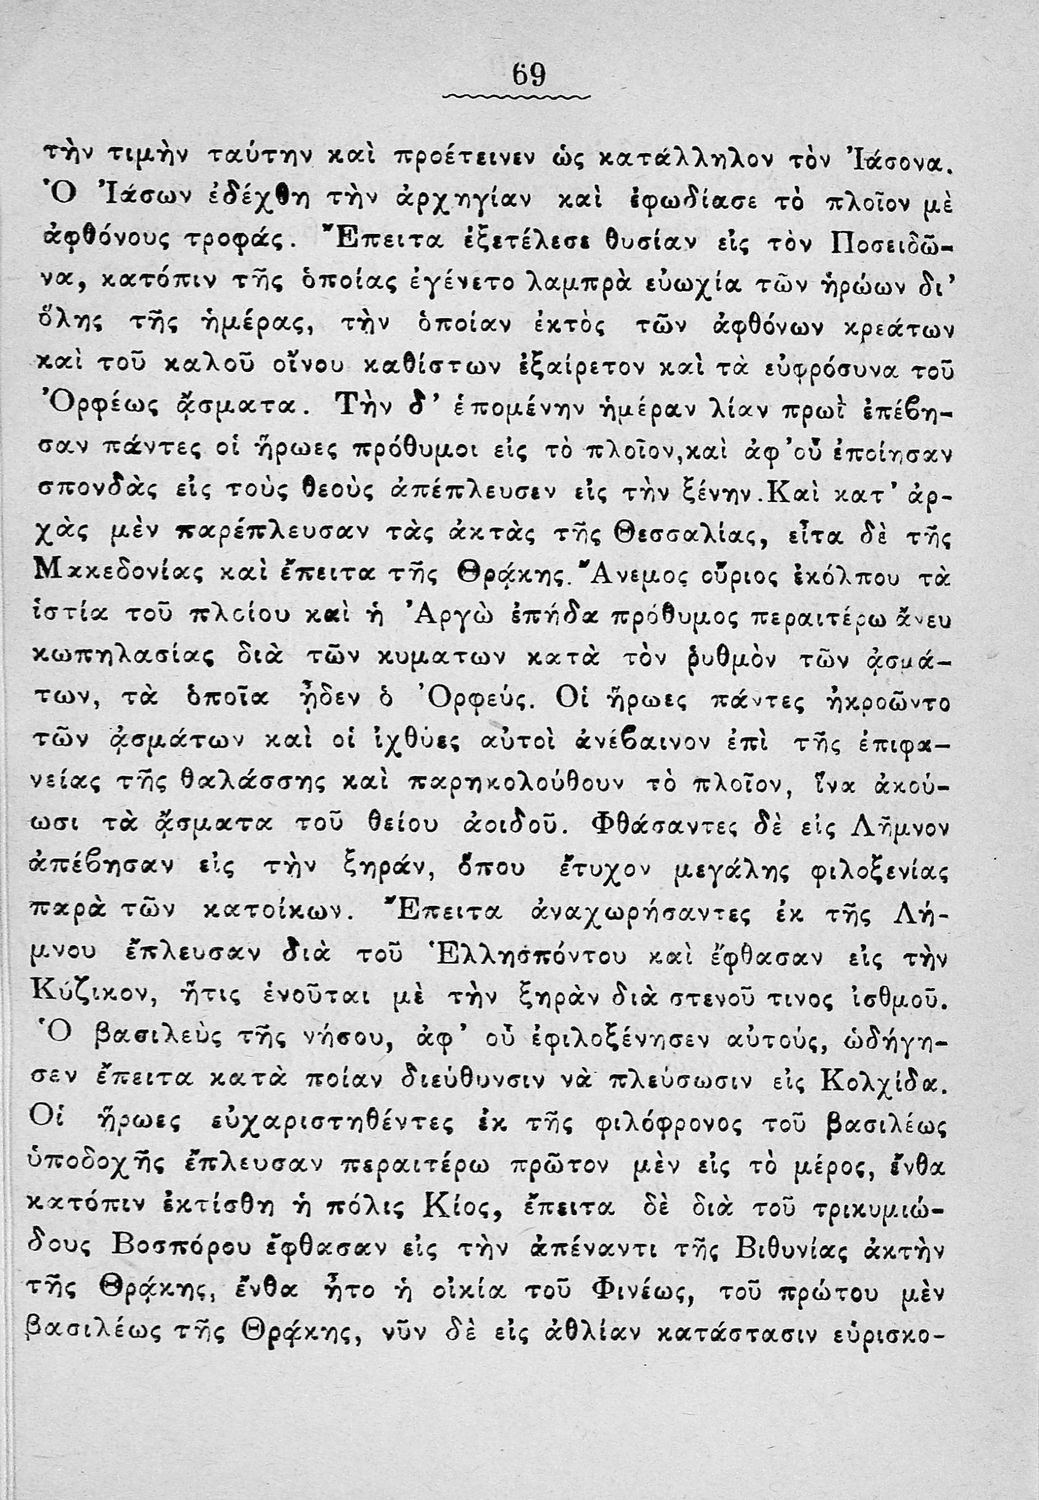 69
τὴν τιμὴν ταύτην καὶ προέτεινεν ὡς κατάλληλον τὸν Ἰάσονα.
Ὁ Ἰάσων ἐδέχθη τὴν ἀρχηγίαν καὶ ἐφωδίασε τὸ πλοῖον μὲ
ἀφθόνους τροφάς. Ἔπειτα ἐξετέλεσε θυσίαν εἰς τὸν Ποσειδῶ-
να, κατόπιν τῆς ὁποίας ἐγένετο λαμπρὰ εὐωχία τῶν ἡρώων δι’
ὅλης τῆς ἡμέρας, τὴν ὁποίαν ἐκτὸς τῶν ἀφθόνων κρεάτων
καὶ τοῦ καλοῦ οἴνου καθίστων ἐξαίρετον καὶ τὰ εὐφρόσυνα τοῦ
Ὀρφέως ᾄσματα. Τὴν δ’ ἑπομένην ἡμέραν λίαν πρωῒ ἐπέβη-
σαν πάντες οἱ ἥρωες πρόθυμοι εἰς τὸ πλοῖον, καὶ ἀφ’ οὗ ἐποίησαν
σπονδὰς εἰς τοὺς θεοὺς ἀπέπλευσεν εἰς τὴν ξένην. Καὶ κατ’ ἀρ-
χὰς μὲν παρέπλευσαν τὰς ἀκτὰς τῆς Θεσσαλίας, εἶτα δὲ τῆς
Μακεδονίας καὶ ἔπειτα τῆς Θρᾴκης. Ἄνεμος οὔριος ἐκόλπου τὰ
ἱστία τοῦ πλοίου καὶ ἡ Ἀργὼ ἐπήδα πρόθυμος περαιτέρω ἄνευ
κωπηλασίας διὰ τῶν κυματων κατὰ τὸν ῥυθμὸν τῶν ᾀσμά-
των, τὰ ὁποῖα ᾖδεν ὁ Ὀρφεύς. Οἱ ἥρωες πάντες ἠκροῶντο
τῶν ᾀσμάτων καὶ οἱ ἰχθύες αὐτοὶ ἀνέβαινον ἐπὶ τῆς ἐπιφα-
νείας τῆς θαλάσσης καὶ παρηκολούθουν τὸ πλοῖον, ἵνα ἀκού-
ωσι τὰ ᾄσματα τοῦ θείου ἀοιδοῦ. Φθάσαντες δὲ εἰς Λῆμνον
ἀπέβησαν εἰς τὴν ξηράν, ὅπου ἔτυχον μεγάλης φιλοξενίας
παρὰ τῶν κατοίκων. Ἔπειτα ἀναχωρήσαντες ἐκ τῆς Λή-
μνου ἔπλευσαν διὰ τοῦ Ἑλλησπόντου καὶ ἔφθασαν εἰς τὴν
Κύζικον, ἥτις ἑνοῦται μὲ τὴν ξηρὰν διὰ στενοῦ τινος ἰσθμοῦ.
Ὁ βασιλεὺς τῆς νήσου, ἀφ’ οὗ ἐφιλοξένησεν αὐτούς, ὡδήγη-
σεν ἔπειτα κατὰ ποίαν διεύθυνσιν νὰ πλεύσωσιν εἰς Κολχίδα.
Οἱ ἥρωες εὐχαριστηθέντες ἐκ τῆς φιλόφρονος τοῦ βασιλέως
ὑποδοχῆς ἔπλευσαν περαιτέρω πρῶτον μὲν εἰς τὸ μέρος, ἔνθα
κατόπιν ἐκτίσθη ἡ πόλις Κίος, ἔπειτα δὲ διὰ τοῦ τρικυμιώ-
δους Βοσπόρου ἔφθασαν εἰς τὴν ἀπέναντι τῆς Βιθυνίας ἀκτὴν
τῆς Θρᾴκης, ἔνθα ἦτο ἡ οἰκία τοῦ Φινέως, τοῦ πρώτου μὲν
βασιλέως τῆς Θρᾴκης, νῦν δὲ εἰς ἀθλίαν κατάστασιν εὑρισκο-